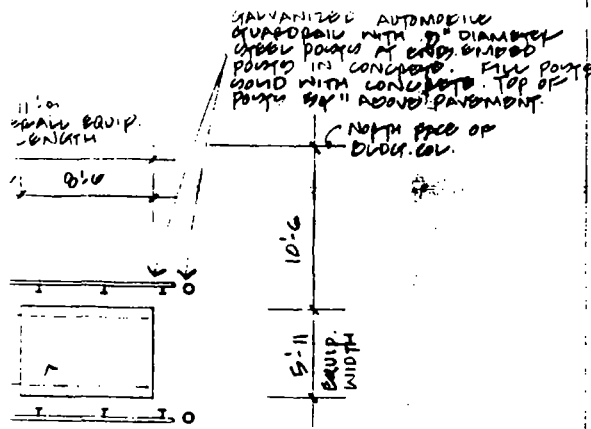 GALVANIZED AUTOMOBILE
GUARDRAIL WITH 8" DIAMETER
STEEL POSTS AT ENDS. EMBED
POSTS IN CONCRETE. FILL POSTS
SOLID WITH CONCRETE. TOP OF
POSTS ABOVE PAVEMENT.
NORTH FACE OF
BLDG. COL.
EQUIP.
LENGTH
8'-6
10'-6
5'-11
EQUIP.
WIDTH